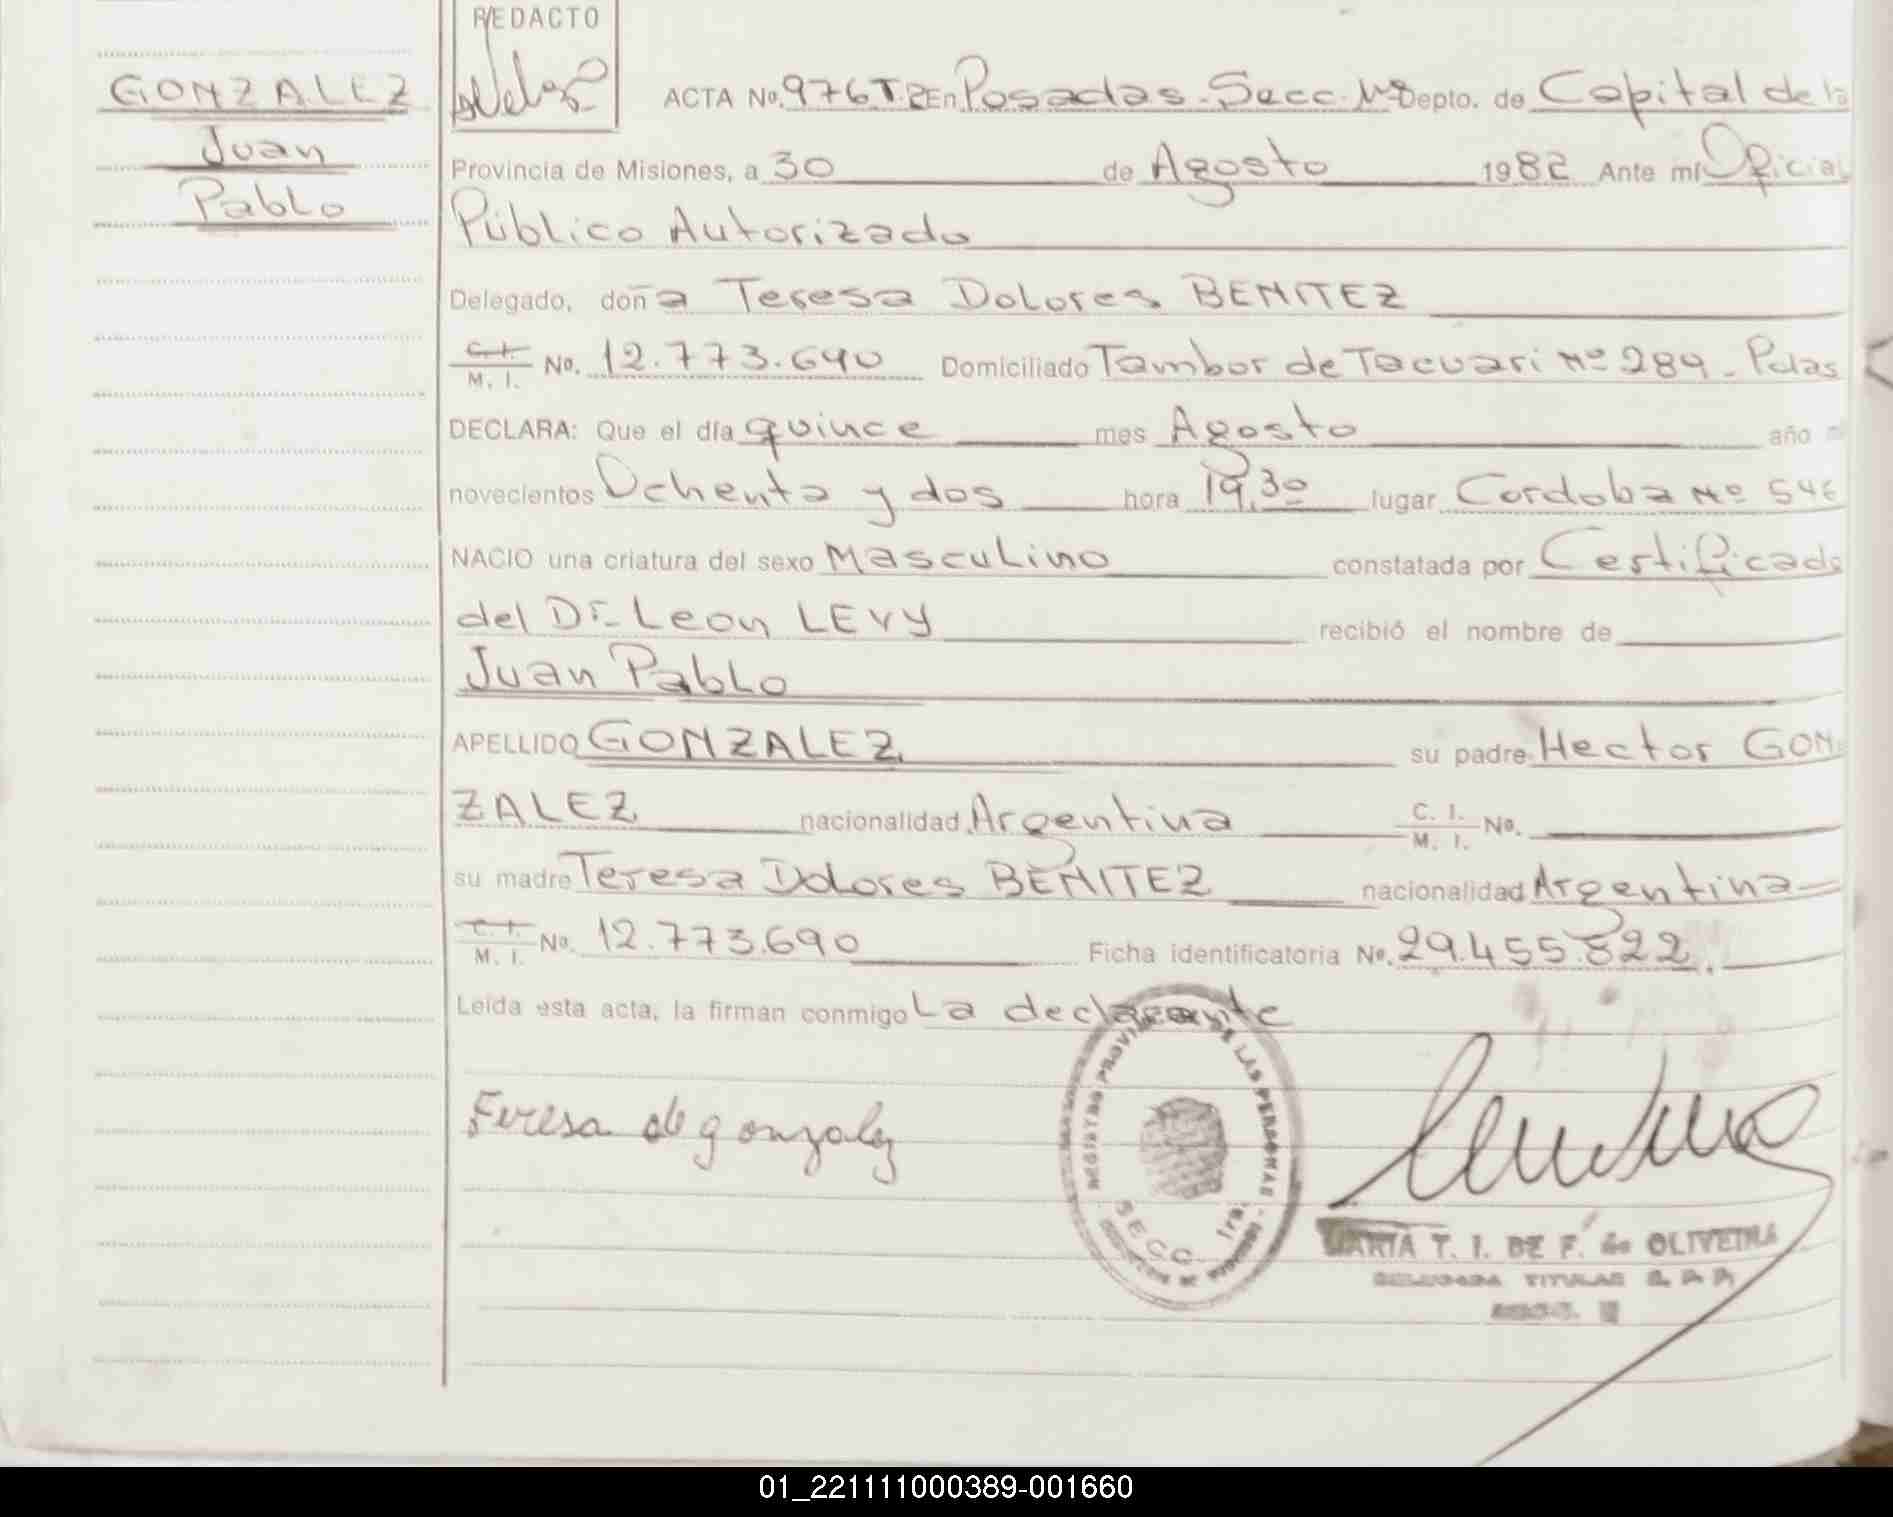 GONZALEZ
Juan
Pablo
REDACTO
ACTA No. 976 T.2 En Posadas - Secc. Depto. de Capital de la
Provincia de Misiones, a 30 de Agosto 1982 Ante mí Oficial
Público Autorizado
Delegado, doña Teresa Dolores BENITEZ
C. I. M. I. No. 12.773.690 Domiciliado Tambor de Tacuari Nº 289 - Pdas
DECLARA: Que el día quince mes Agosto año
novecientos Ochenta y dos hora 19,30 lugar Cordoba Nº 546
NACIO una criatura del sexo Masculino constatada por Certificado
del Dr. Leon LEVY recibió el nombre de
Juan Pablo
APELLIDO GONZALEZ su padre Hector GON
ZALEZ nacionalidad Argentina C. I. M. I. No.
su madre Teresa Dolores BENITEZ nacionalidad Argentina
C. I. M. I. No. 12.773.690 Ficha identificatoria No. 29.455.822.
Leída esta acta, la firman conmigo La declarante
Teresa de gonzalez
REGISTRO PROVINCIAL DE LAS PERSONAS
SECC. 1ra.
MARIA T. I. DE F. de OLIVEIRA
DELEGADA TITULAR
01_221111000389-001660